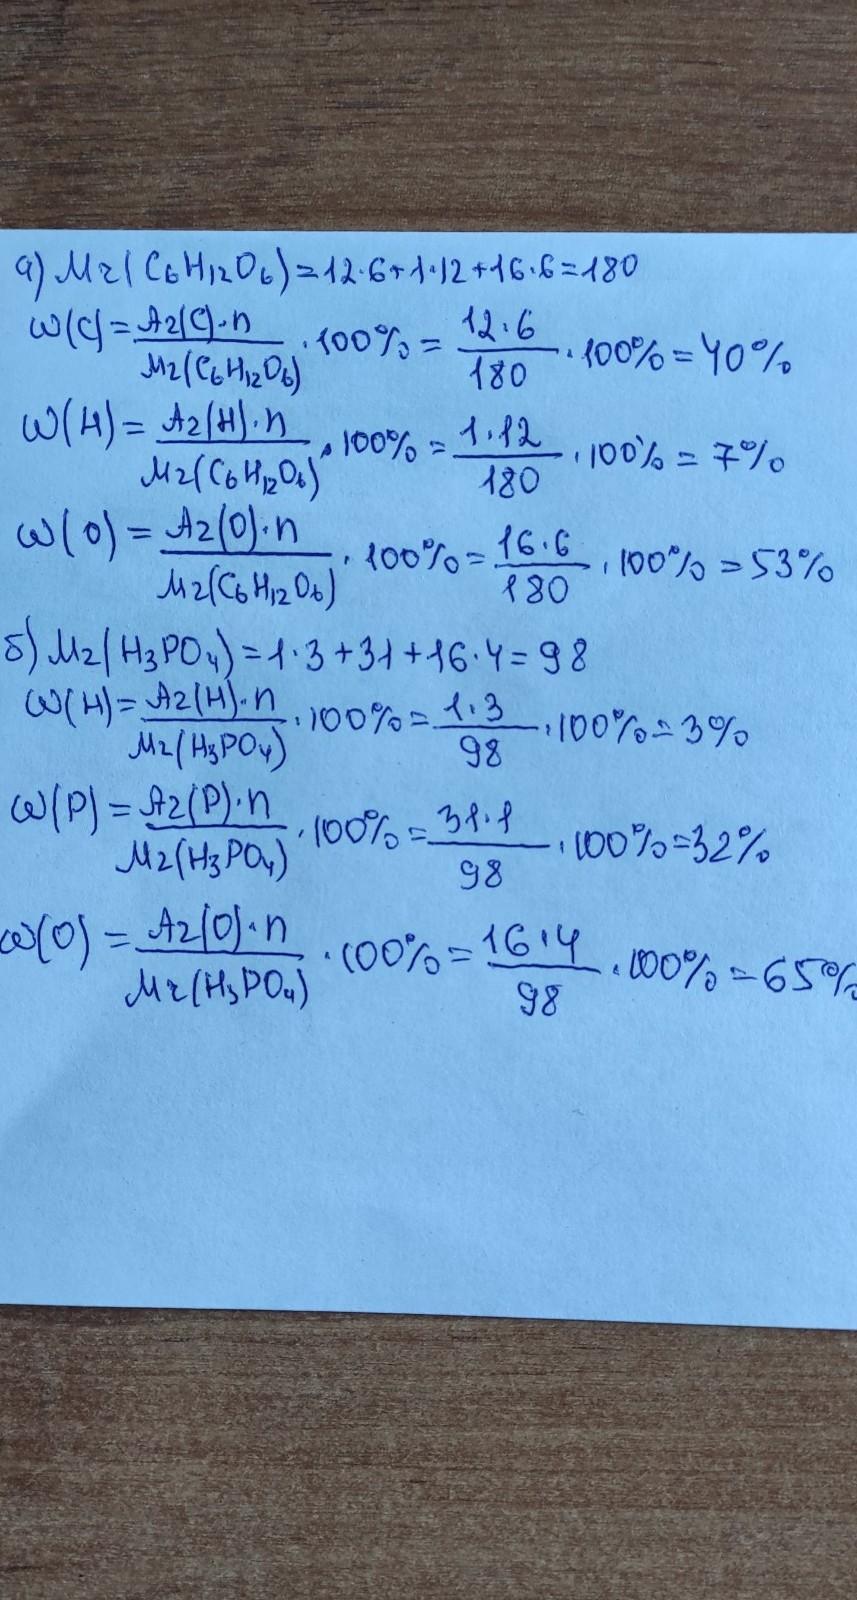 а) Mr(C₆H₁₂O₆)=12·6+1·12+16·6=180
ω(C)=Ar(C)·n/Mr(C₆H₁₂O₆)·100%=12·6/180·100%=40%
ω(H)=Ar(H)·n/Mr(C₆H₁₂O₆)·100%=1·12/180·100%=7%
ω(O)=Ar(O)·n/Mr(C₆H₁₂O₆)·100%=16·6/180·100%=53%
б) Mr(H₃PO₄)=1·3+31+16·4=98
ω(H)=Ar(H)·n/Mr(H₃PO₄)·100%=1·3/98·100%=3%
ω(P)=Ar(P)·n/Mr(H₃PO₄)·100%=31·1/98·100%=32%
ω(O)=Ar(O)·n/Mr(H₃PO₄)·100%=16·4/98·100%=65%